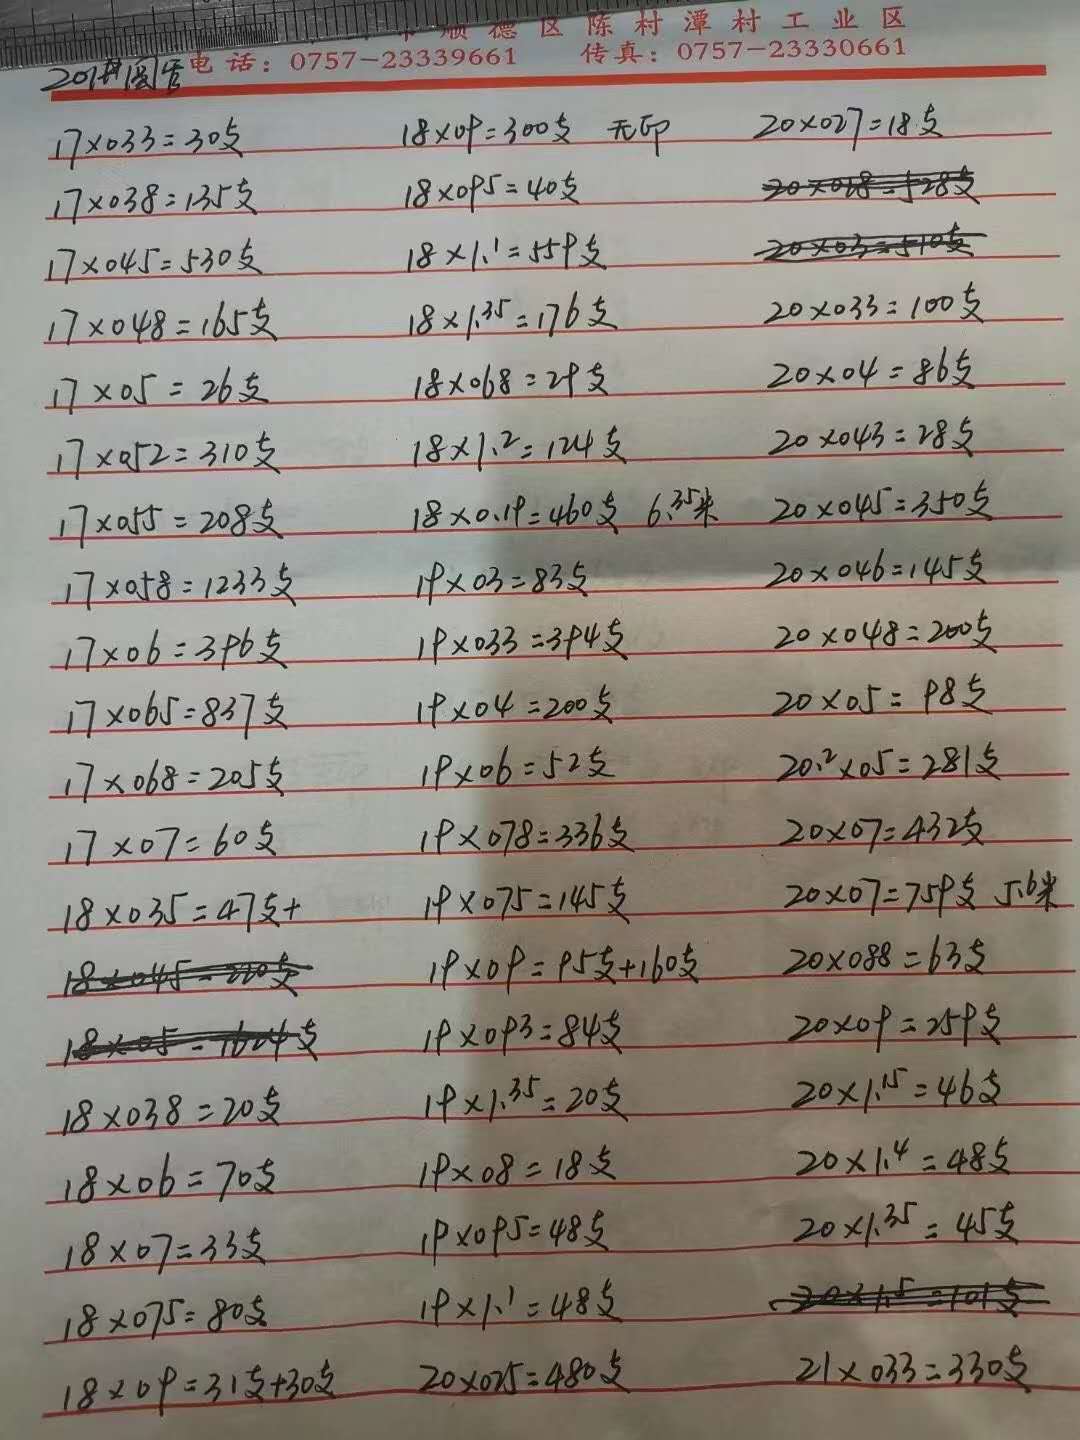 顺德区陈村潭村工业区
电话：0757-23339661 传真：0757-23330661
201#圆管
17×033=30支
17×038=135支
17×045=530支
17×048=165支
17×05=26支
17×052=310支
17×055=208支
17×058=1233支
17×06=396支
17×065=837支
17×068=205支
17×07=60支
18×035=47支+
18×045=220支
18×05=1624支
18×038=20支
18×06=70支
18×07=33支
18×075=80支
18×09=31支+30支
18×09=300支 无印
18×095=40支
18×1.1=559支
18×1.35=176支
18×068=29支
18×1.2=124支
18×0.19=460支 6.35米
19×03=83支
19×033=394支
19×04=200支
19×06=52支
19×078=336支
19×075=145支
19×09=95支+160支
19×093=84支
19×1.35=20支
19×08=18支
19×095=48支
19×1.1=48支
20×025=480支
20×027=18支
20×028=528支
20×03=510支
20×033=100支
20×04=86支
20×043=28支
20×045=350支
20×046=145支
20×048=200支
20×05=98支
20.2×05=281支
20×07=432支
20×07=759支 5.6米
20×088=63支
20×09=259支
20×1.15=46支
20×1.4=48支
20×1.35=45支
20×1.5=101支
21×033=330支